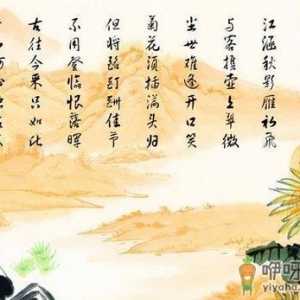 江涵秋影雁初飞
与客携壶上翠微
尘世难逢开口笑
菊花须插满头归
但将酩酊酬佳节
不用登临恨落晖
古往今来只如此
咿呀
yiyaha